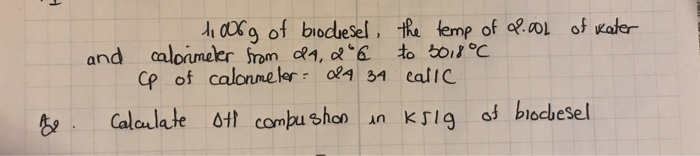 1,006g of biodiesel, the temp of 2.00L of water
and calorimeter from 24, 2°C to 30,8°C
Cp of calorimeter = 24 34 cal/C
Calculate ΔH combustion in KJ/g of biodiesel